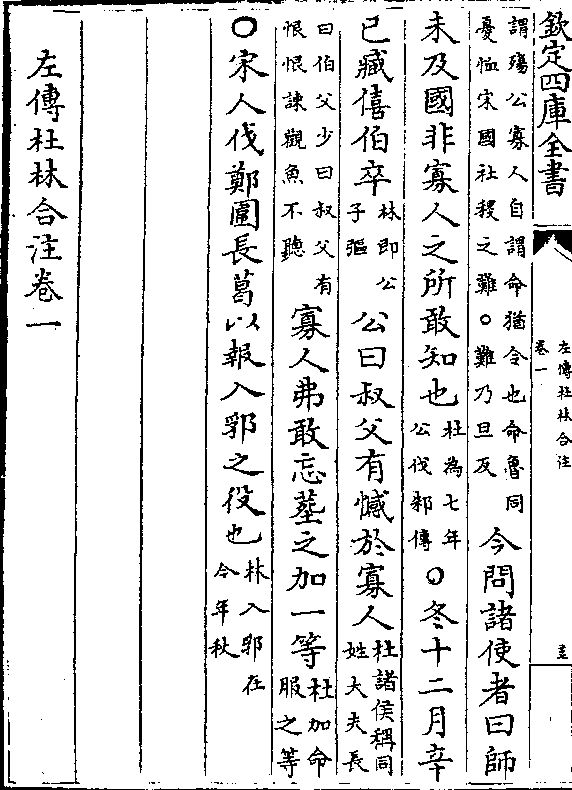 欽定四庫全書
左傳杜林合注
卷一
謂殤公寡人自謂命猶令也命魯同
憂恤宋國社稷之難○難乃旦反
今問諸使者曰師
未及國非寡人之所敢知也
杜為七年
公伐邾傳
○冬十二月辛
已臧僖伯卒
林即公
子彄
公曰叔父有憾於寡人
杜諸侯稱同
姓大夫長
曰伯父少曰叔父有
恨恨諫觀魚不聽
寡人弗敢忘塟之加一等
杜加命
服之等
○宋人伐鄭圍長葛以報入郛之役也
林入郛在
今年秋
左傳杜林合注卷一